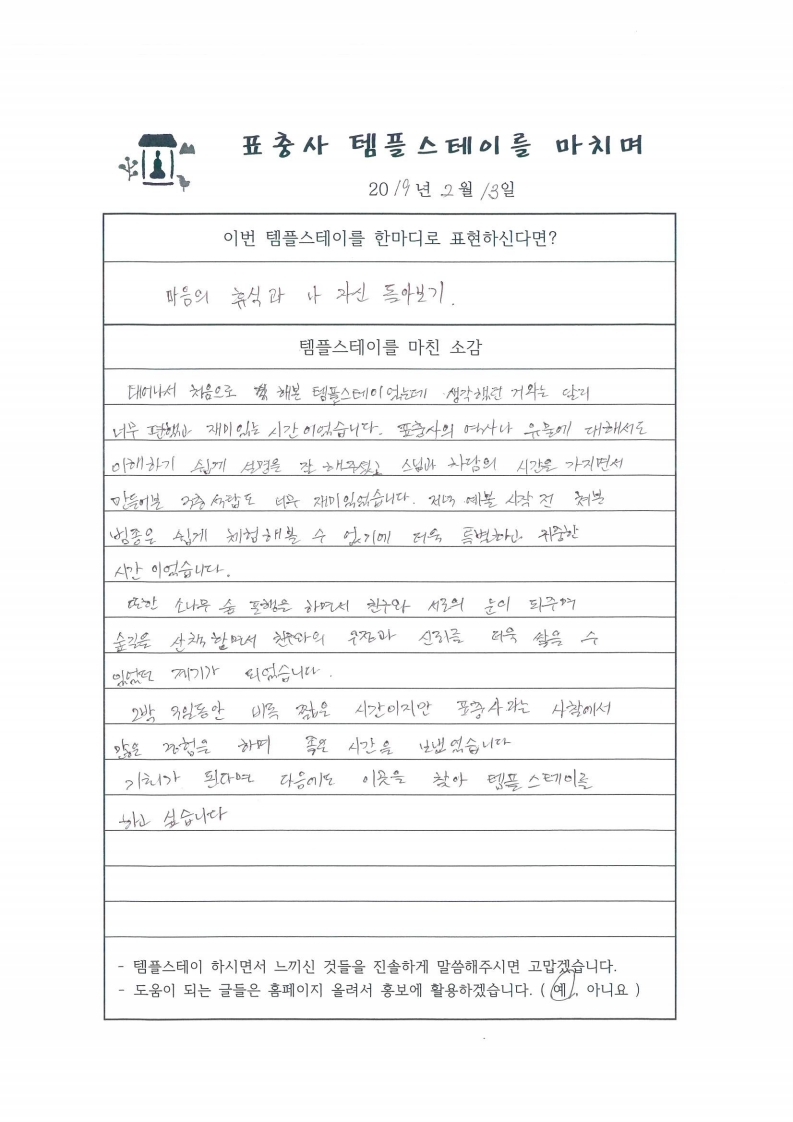 표충사 템플스테이를 마치며
2019년 2월 13일
이번 템플스테이를 한마디로 표현하신다면?
마음의 휴식과 나 자신 돌아보기.
템플스테이를 마친 소감
태어나서 처음으로 해본 템플스테이였는데 생각했던 거와는 달리
너무 편했고 재미있는 시간이었습니다. 표충사의 역사나 유물에 대해서도
이해하기 쉽게 설명을 잘 해주셨고 스님과 차담의 시간을 가지면서
만들어본 3층석탑도 너무 재미있었습니다. 저녁 예불 시작 전 쳐본
범종은 쉽게 체험해볼 수 없기에 더욱 특별하고 귀중한
시간이었습니다.
또한 소나무 숲 포행은 하면서 친구와 서로의 눈이 되주며
숲길을 산책할면서 친구와의 우정과 신뢰를 더욱 쌓을 수
있었던 계기가 되었습니다.
2박 3일동안 비록 짧은 시간이지만 표충사라는 사찰에서
많은 경험을 하며 좋은 시간을 보냈었습니다
기회가 된다면 다음에도 이곳을 찾아 템플스테이를
하고 싶습니다
- 템플스테이 하시면서 느끼신 것들을 진솔하게 말씀해주시면 고맙겠습니다.
- 도움이 되는 글들은 홈페이지 올려서 홍보에 활용하겠습니다. ( 예 , 아니요 )